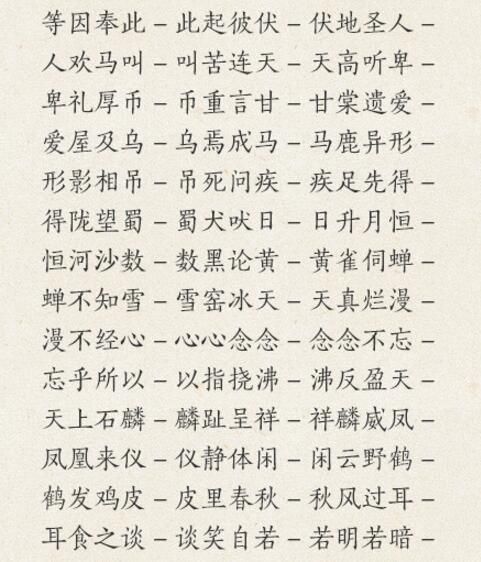 等因奉此 – 此起彼伏 – 伏地圣人 –
人欢马叫 – 叫苦连天 – 天高听卑 –
卑礼厚币 – 币重言甘 – 甘棠遗爱 –
爱屋及乌 – 乌焉成马 – 马鹿异形 –
形影相吊 – 吊死问疾 – 疾足先得 –
得陇望蜀 – 蜀犬吠日 – 日升月恒 –
恒河沙数 – 数黑论黄 – 黄雀伺蝉 –
蝉不知雪 – 雪窑冰天 – 天真烂漫 –
漫不经心 – 心心念念 – 念念不忘 –
忘乎所以 – 以指挠沸 – 沸反盈天 –
天上石麟 – 麟趾呈祥 – 祥麟威凤 –
凤凰来仪 – 仪静体闲 – 闲云野鹤 –
鹤发鸡皮 – 皮里春秋 – 秋风过耳 –
耳食之谈 – 谈笑自若 – 若明若暗 –